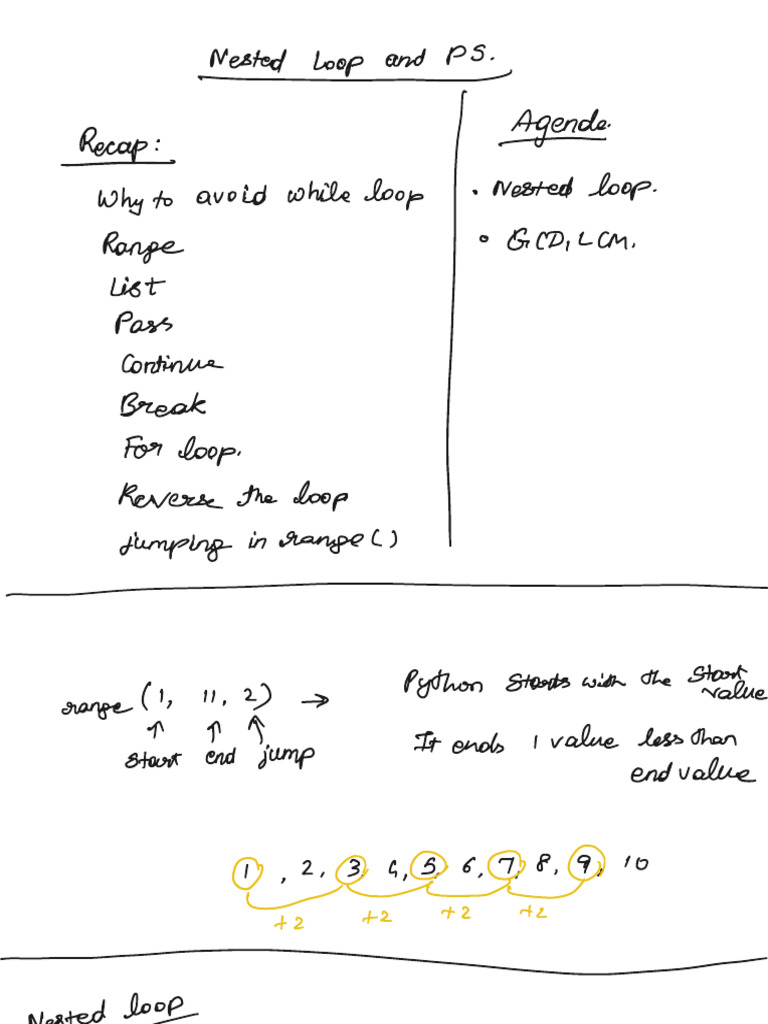 Nested Loop and PS.
Recap:
Why to avoid while loop
Range
List
Pass
Continue
Break
For loop.
Reverse the loop
jumping in range()
Agenda.
• Nested loop.
• GCD, LCM.
range (1, 11, 2) →
↑ ↑ ↑
start end jump
Python starts with the start
value
It ends 1 value less than
end value
1, 2, 3 4, 5, 6, 7, 8, 9, 10
+2 +2 +2 +2
Nested loop